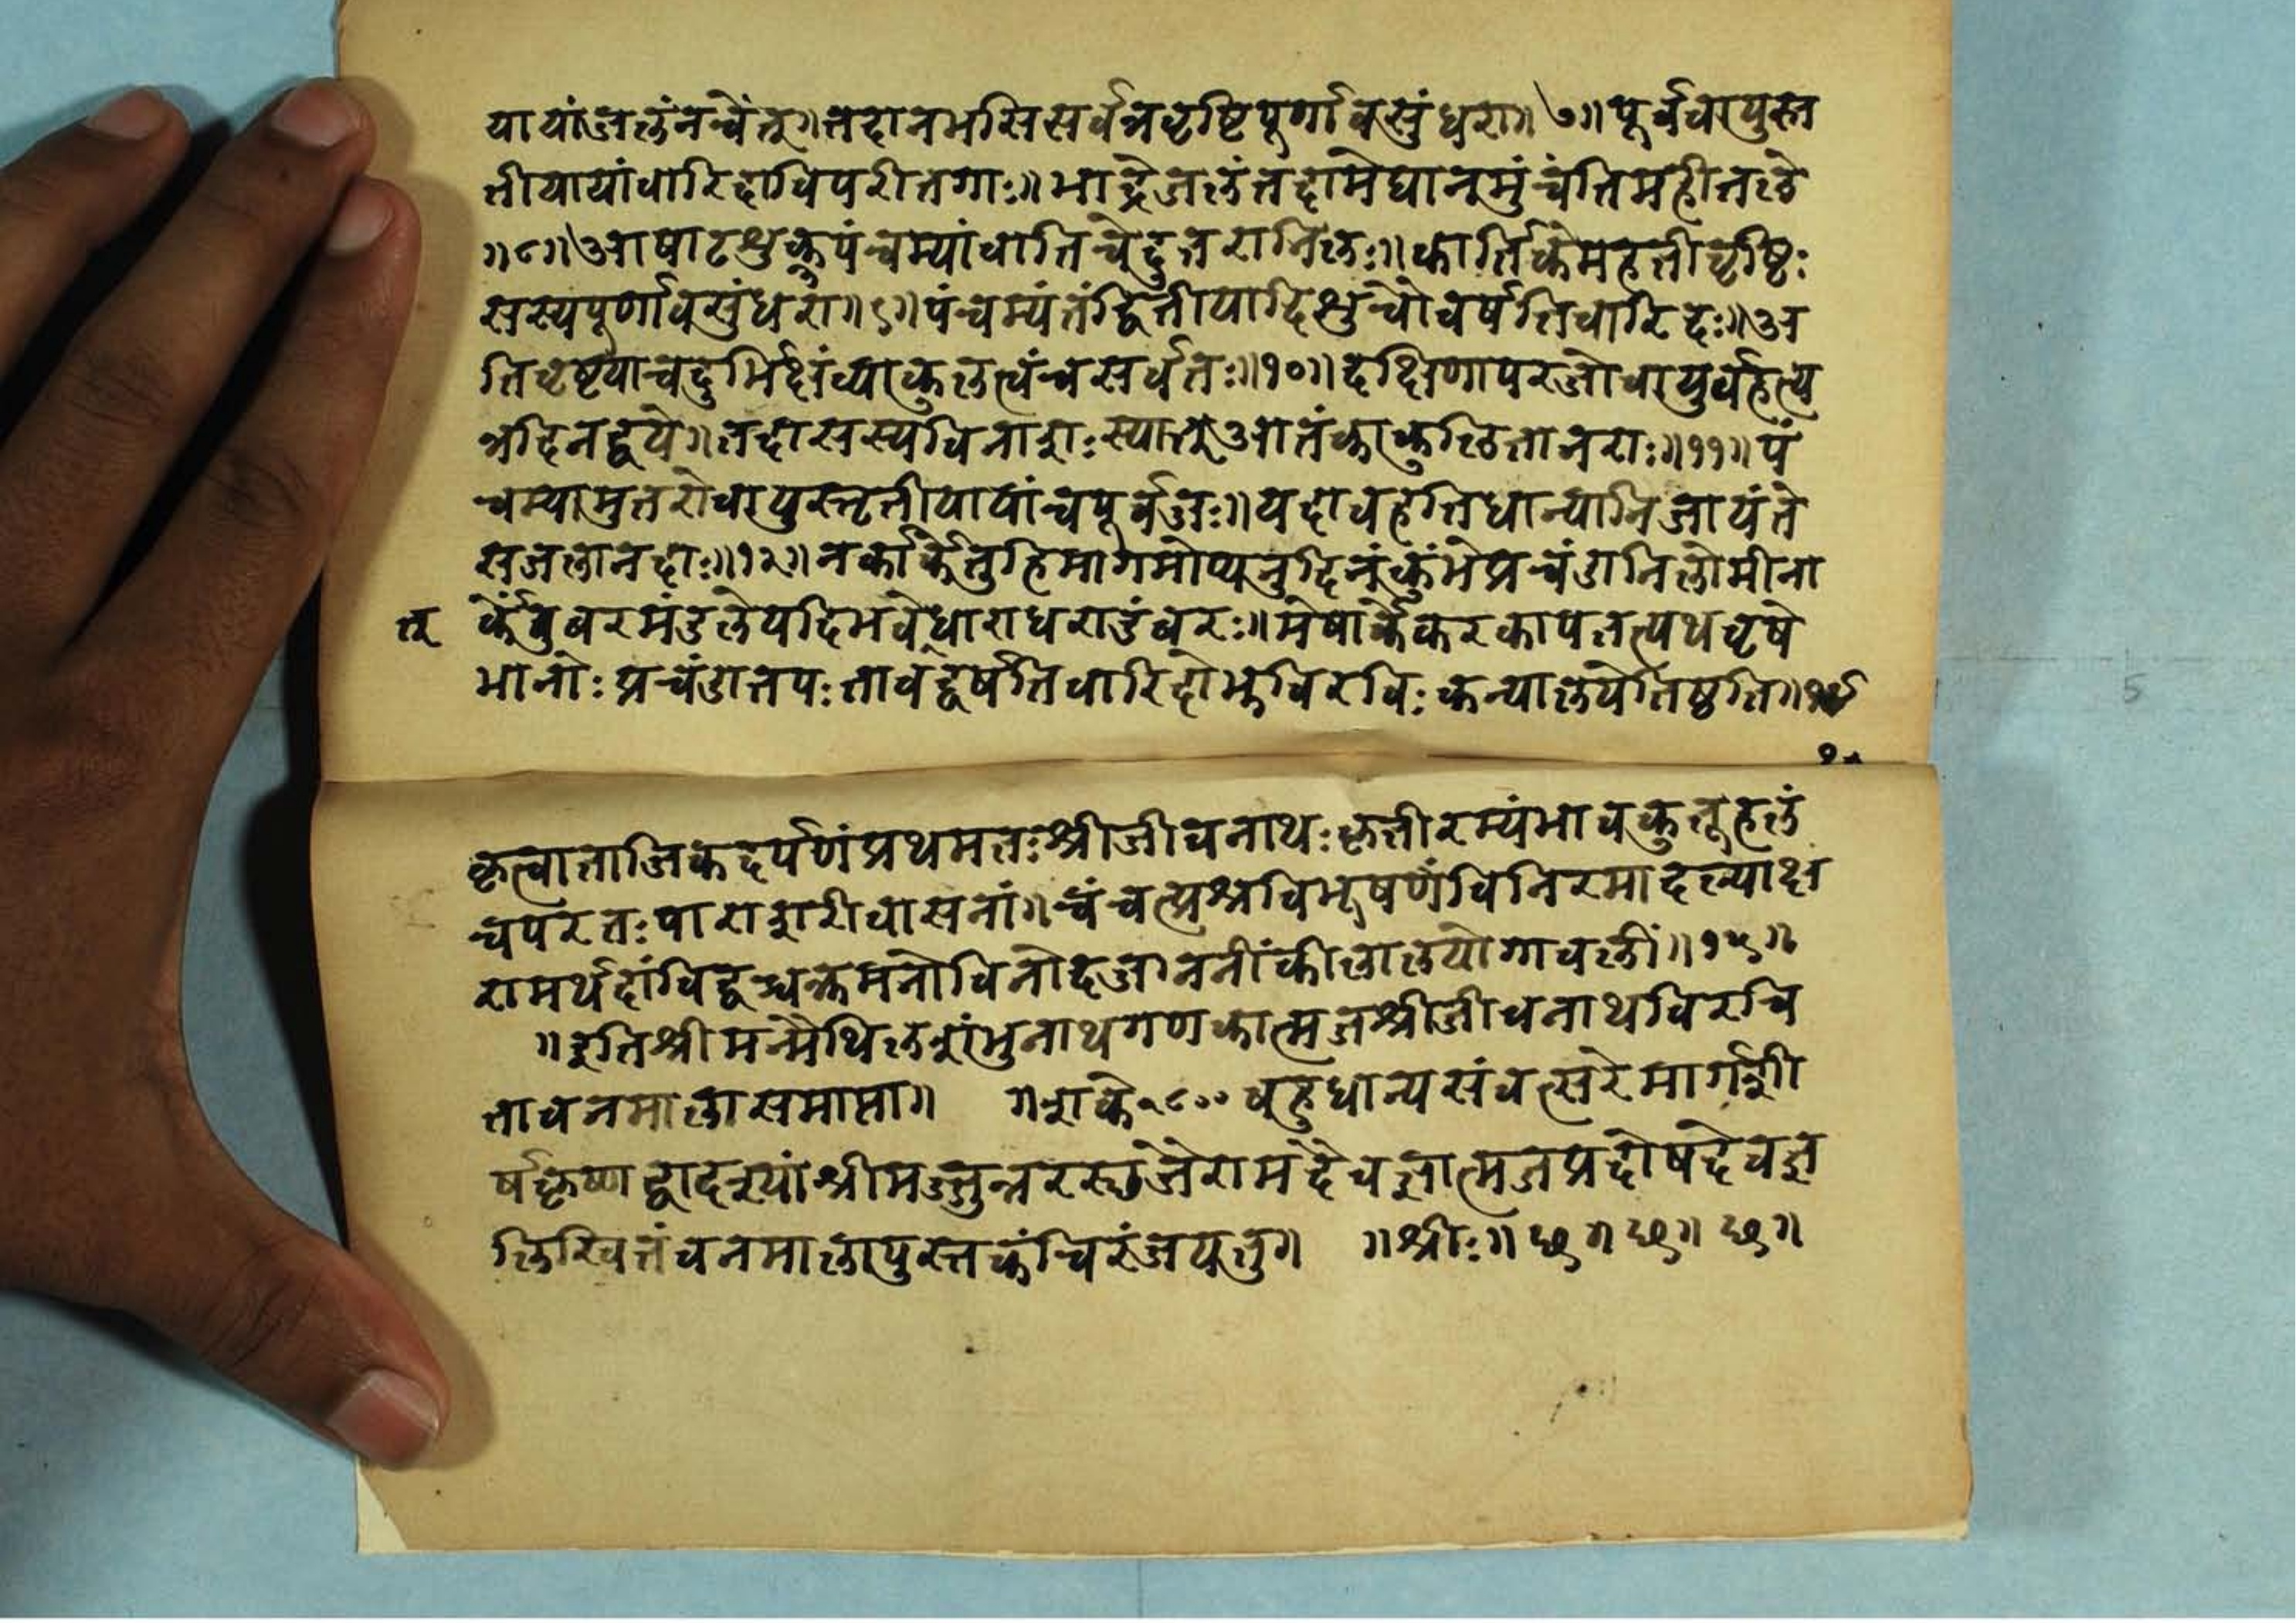 यायांजलंनचेत्तु॥तदानभसिसर्वत्रवृष्टिपूर्णावसुंधरा॥७॥पूर्ववायुस्तृ
तीयायांवारिदाविपरीतगाः॥भाद्रेजलंतदामेघानमुंचंतिमहीतले
॥८॥आषाढशुक्लपंचम्यांवातिचेदुत्तरानिलः॥कार्तिकेमहतीवृष्टिः
सस्यपूर्णावसुंधरा॥९॥पंचम्यंतंद्वितीयादिशुचौवर्षतिवारिदः॥अ
तिवृष्टयाचदुर्भिक्षंव्याकुलत्वंचसर्वतः॥१०॥दक्षिणापरजोवायुर्वहत्य
त्रदिनद्वये॥तदासस्यविनाशःस्यात्आतंकाकुलितानराः॥११॥पं
चम्यामुत्तरोवायुस्तृतीयायांचपूर्वजः॥यदावहतिधान्यानिजायंते
सजलानदाः॥१२॥नर्कार्केतुहिमागमोप्यनुदिनंकुंभेप्रचंडानिलोमीना
र्केंबुवरमंडलेयदिभवेद्धाराधराडंबरः॥मेषार्केकरकापतत्यथवृषे
भानोःप्रचंडातपःतावद्वर्षतिवारिदोभुविरविःकन्यालयेतिष्ठति॥
कृत्वाताजिकदर्पणंप्रथमतःश्रीजीवनाथःकृतीरम्यंभावकुतूहलं
चपरतःपाराशरीवासनां॥चंचत्प्रश्नविभूषणंविनिरमादल्पाक्ष
रामर्थदांविद्वच्चक्रमनोविनोदजाननींकीलालयोगावलीं॥१५॥
॥इतिश्रीमन्मैथिलशंभुनाथगणकात्मजश्रीजीवनाथविरचि
तावनमालासमाप्ता॥ ॥शके१८००बहुधान्यसंवत्सरेमार्गशी
र्षकृष्णद्वादश्यांश्रीमज्जुन्नरस्छजेरामदैवज्ञात्मजप्रदोषदेवज्ञ
लिखितंवनमालापुस्तकंचिरंजयतु॥ ॥श्रीः॥छ॥छ॥छ॥